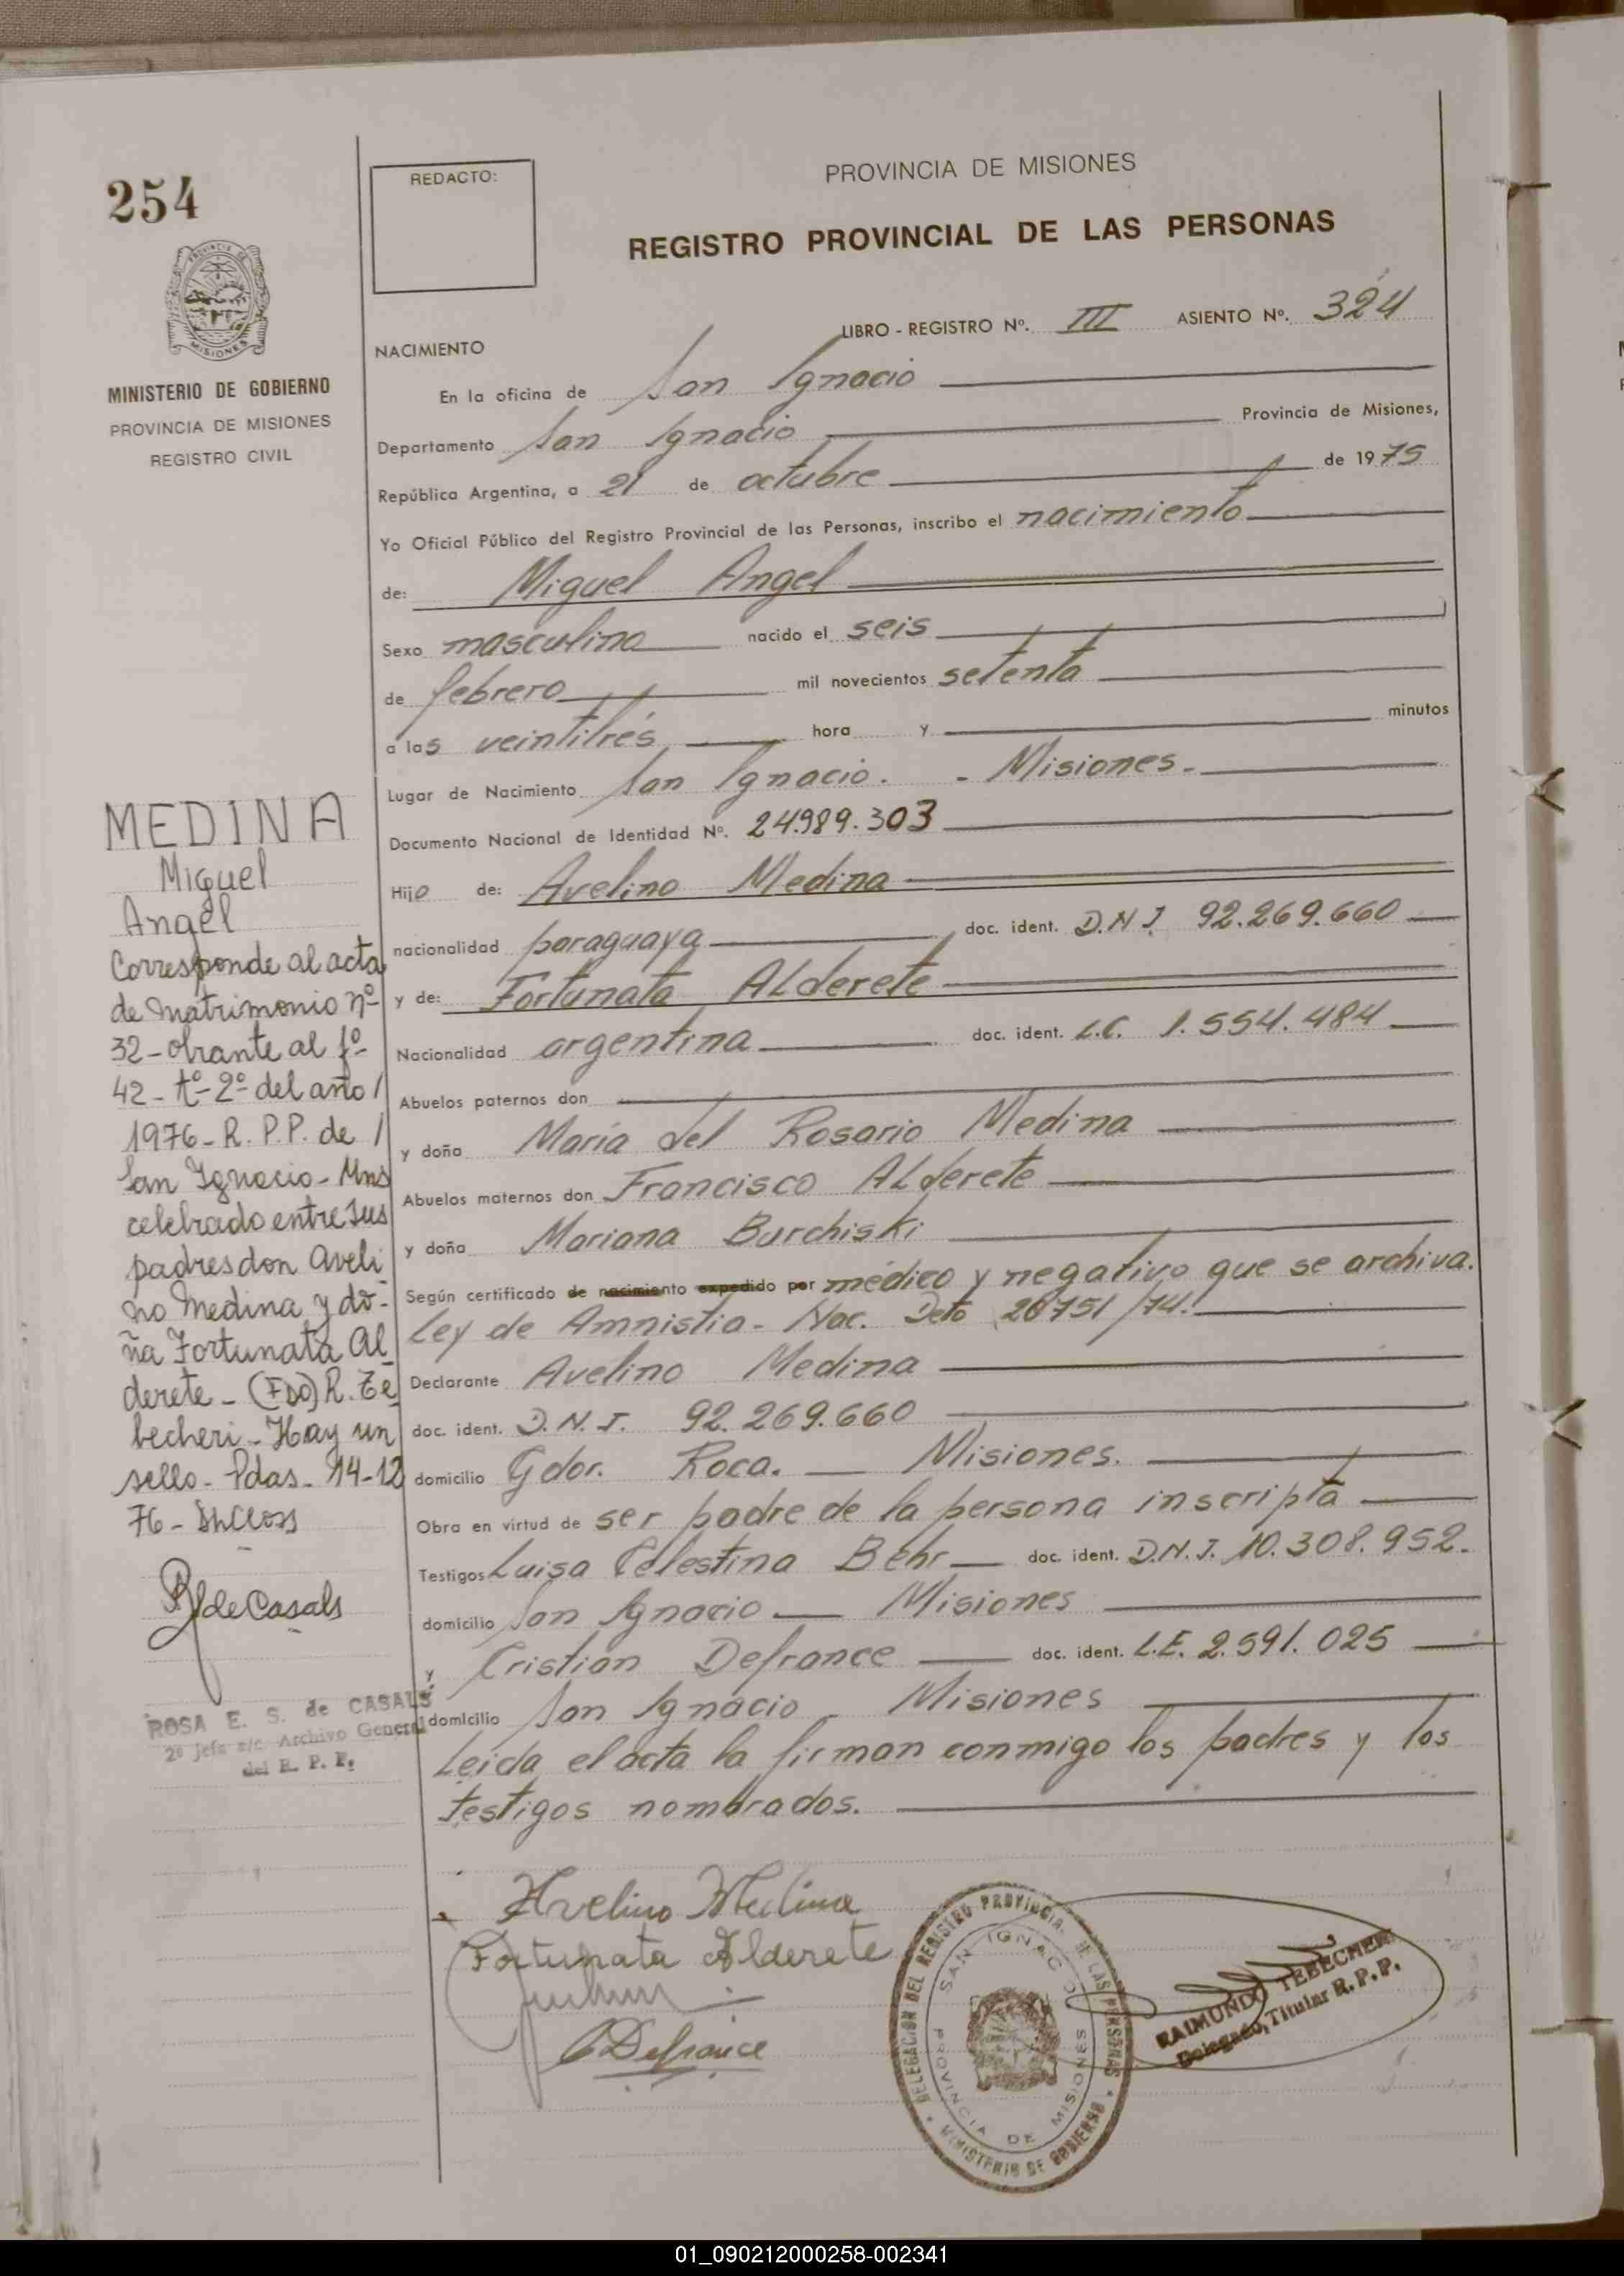 254
REDACTO:
PROVINCIA DE MISIONES
REGISTRO PROVINCIAL DE LAS PERSONAS
PROVINCIA DE
MISIONES
MINISTERIO DE GOBIERNO
PROVINCIA DE MISIONES
REGISTRO CIVIL
LIBRO - REGISTRO Nº. III ASIENTO Nº. 324
NACIMIENTO
En la oficina de San Ignacio
Departamento San Ignacio Provincia de Misiones,
República Argentina, a 21 de octubre de 1975
Yo Oficial Público del Registro Provincial de las Personas, inscribo el nacimiento
de: Miguel Angel
Sexo masculino nacido el seis
de febrero mil novecientos setenta
a las veintitrés hora y minutos
Lugar de Nacimiento San Ignacio. - Misiones.-
Documento Nacional de Identidad Nº. 24.989.303
Hijo de: Avelino Medina
nacionalidad paraguaya doc. ident. D.N.I. 92.269.660
y de: Fortunata Alderete
Nacionalidad argentina doc. ident. L.C. 1.554.484
Abuelos paternos don
y doña María del Rosario Medina
Abuelos maternos don Francisco Alderete
y doña Mariana Burchiski
Según certificado de nacimiento expedido por médico y negativo que se archiva.
Ley de Amnistía - Nac. Deto 20751/74.
Declarante Avelino Medina
doc. ident. D.N.I. 92.269.660
domicilio Gdor. Roca. — Misiones.
Obra en virtud de ser padre de la persona inscripta
Testigos Luisa Celestina Behr doc. ident. D.N.I. 10.308.952.
domicilio San Ignacio — Misiones
y Cristian Defrance doc. ident. L.E. 2.591.025
domicilio San Ignacio - Misiones
Leída el acta la firman conmigo los padres y los
testigos nombrados.
MEDINA
Miguel
Angel
Corresponde al acta
de matrimonio nº
32 - obrante al fº
42 - tº - 2º del año /
1976 - R. P. P. de /
San Ignacio - Mns
celebrado entre sus
padres don Aveli
no Medina y do-
ña Fortunata Al
derete - (FDO) R. Te
becheri - Hay un
sello - Pdas - 14-12
76 -
de Casals
ROSA E. S. de CASALS
2º Jefe a/c. Archivo General
del R. P. P.
Avelino Medina
Fortunata Alderete
CDefrance
DELEGACION DEL REGISTRO PROVINCIAL DE LAS PERSONAS
SAN IGNACIO
PROVINCIA DE MISIONES
MINISTERIO DE GOBIERNO
RAIMUNDO TEBECHERI
Delegado, Titular R. P. P.
01_090212000258-002341